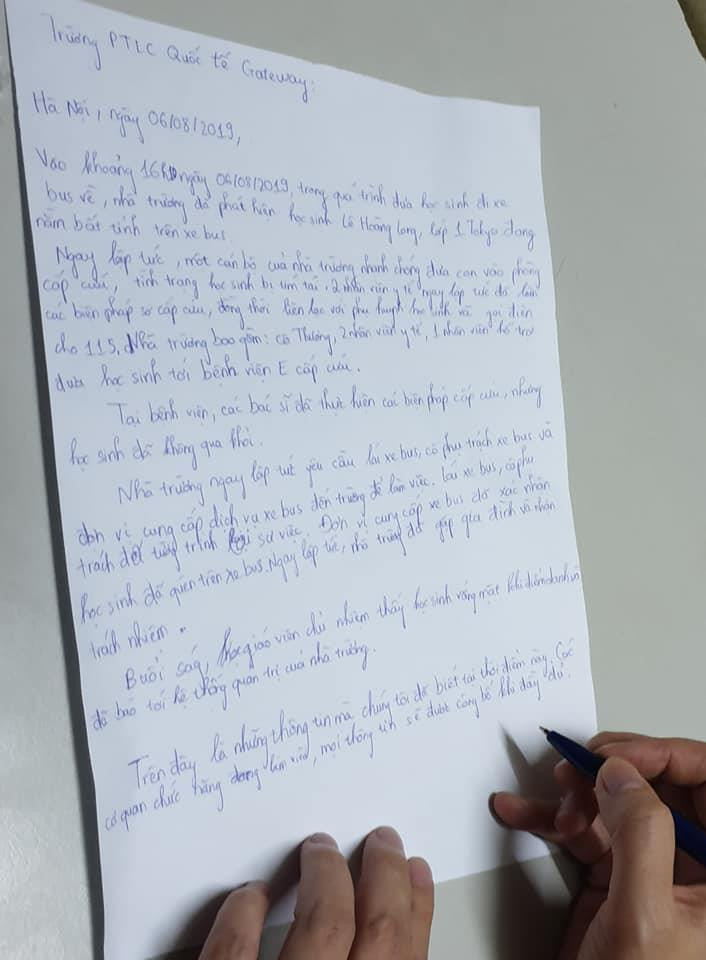 Trường PTLC Quốc tế Gateway:
Hà Nội, ngày 06/08/2019,
Vào khoảng 16h ngày 06/08/2019, trong quá trình đưa học sinh đi xe
bus về, nhà trường đã phát hiện học sinh Lê Hoàng Long, lớp 1 Tokyo đang
nằm bất tỉnh trên xe bus.
Ngay lập tức, một cán bộ của nhà trường nhanh chóng đưa con vào phòng
cấp cứu, tình trạng học sinh bị tím tái, 2 nhân viên y tế ngay lập tức đã làm
các biện pháp sơ cấp cứu, đồng thời liên lạc với phụ huynh học sinh và gọi điện
cho 115. Nhà trường bao gồm: cô Thương, 2 nhân viên y tế, 1 nhân viên hỗ trợ
đưa học sinh tới bệnh viện E cấp cứu.
Tại bệnh viện, các bác sĩ đã thực hiện các biện pháp cấp cứu, nhưng
học sinh đã không qua khỏi.
Nhà trường ngay lập tức yêu cầu lái xe bus, cô phụ trách xe bus và
đơn vị cung cấp dịch vụ xe bus đến trường để làm việc. Lái xe bus, cô phụ
trách đã tường trình lại sự việc. Đơn vị cung cấp xe bus đã xác nhận
học sinh đã quên trên xe bus. Ngay lập tức, nhà trường đã gặp gia đình và nhận
trách nhiệm.
Buổi sáng, giáo viên chủ nhiệm thấy học sinh vắng mặt khi điểm danh và
đã báo tới hệ thống quản trị của nhà trường.
Trên đây là những thông tin mà chúng tôi đã biết tại thời điểm này. Các
cơ quan chức năng đang làm việc, mọi thông tin sẽ được công bố khi đầy đủ.